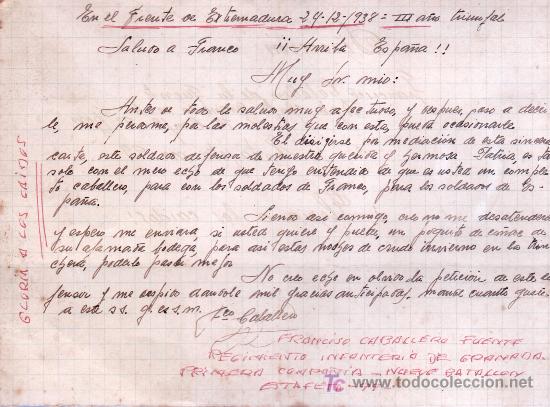 En el Frente de Extremadura 24-12-1938 = III año triunfal
Saludo a Franco ¡¡ Arriba España!!
Muy Sr. mio:
Antes de todo le saludo muy afectuoso, y despues, paso a decir
le, me perdone, por las molestias que con esta, pueda ocasionarle
El dirigirme por mediación de esta sincera
carta, este soldado defensor de nuestra querida y hermosa Patria, es tan
solo con el mero echo de que tengo entendido de que es usted un comple
to caballero, para con los soldados de Franco, para los soldados de Es-
paña.
Siendo asi conmigo, creo no me desatendera
y espero me enviara si usted quiere y puede, un poquito de coñac de
su afamada bodega, para asi estas noches de crudo invierno en la trin
chera, poderlo pasar mejor
No creo eche en olvido la petición de este de
fensor y me despido dandole mil gracias anticipadas, mande cuanto guste
a este s.s. q.e.s.m.
Fco Caballero
FRANCISO CABALLERO FUENTE
REGIMIENTO INFANTERIA DE GRANADA
PRIMERA COMPAÑIA - NOVENO BATALLON
ESTAFETA
GLORIA A LOS CAIDOS
TC todocoleccion
www.todocoleccion.net